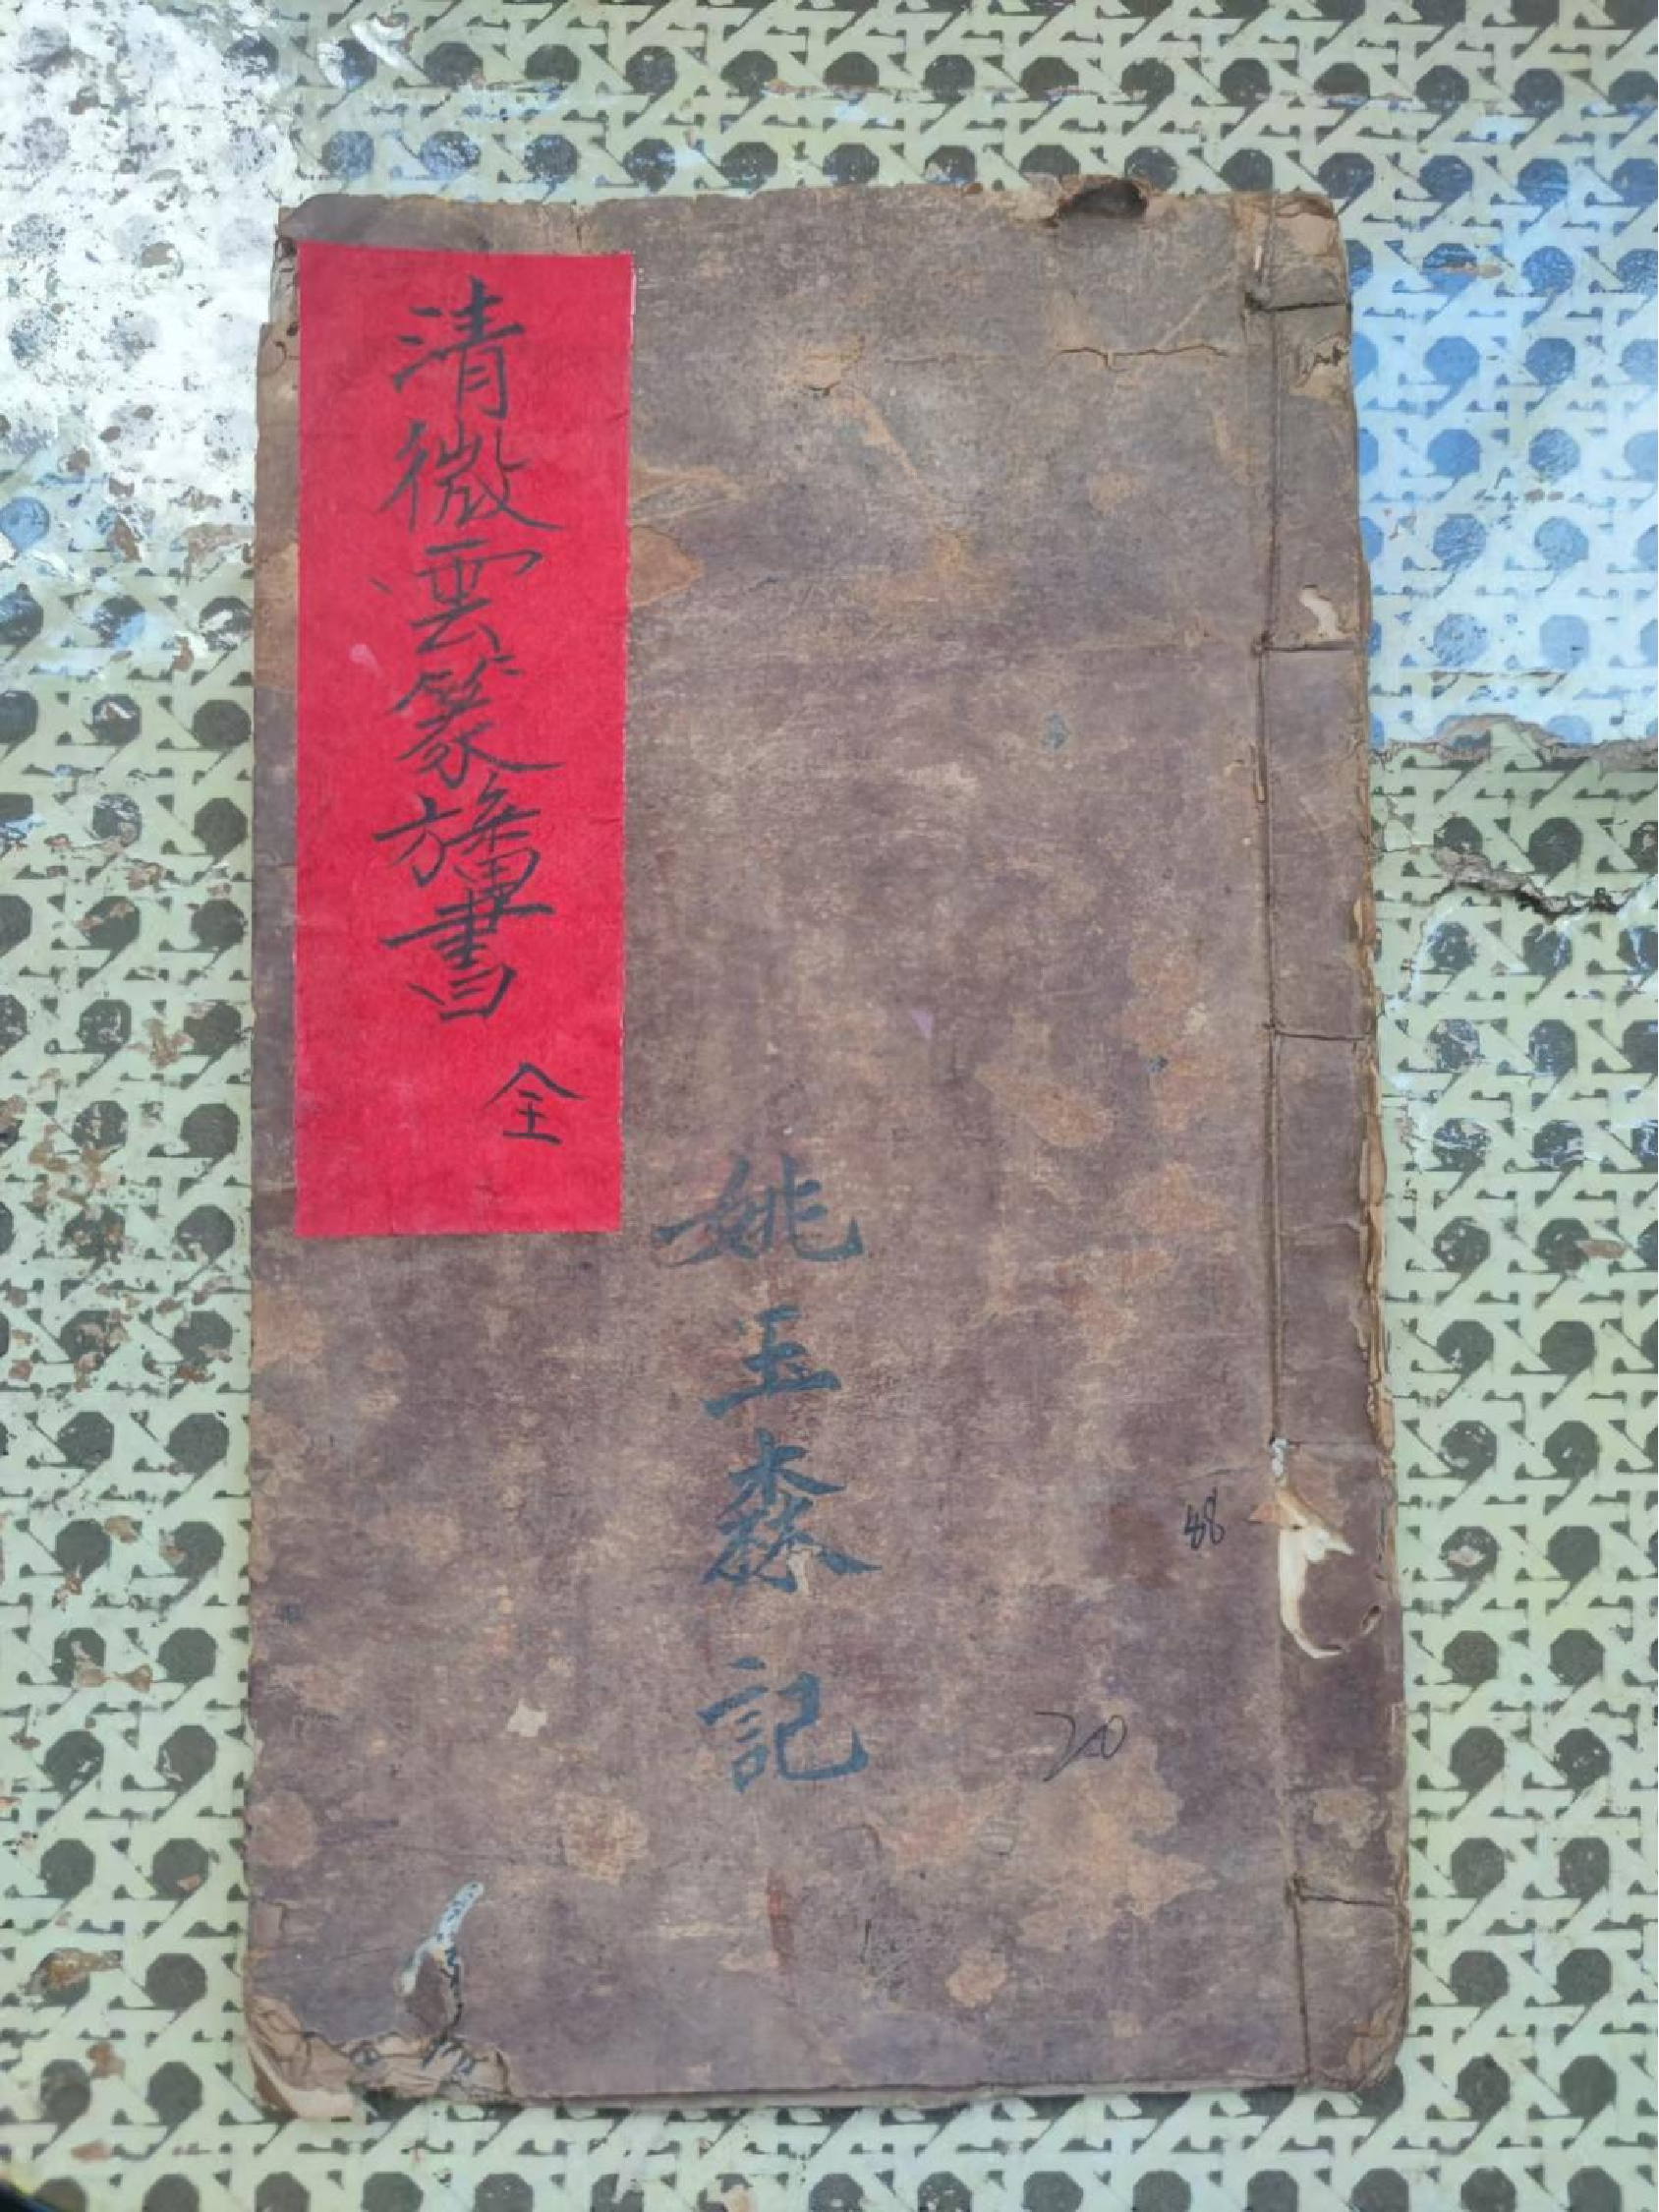 清微雲篆旛書
全
姚玉森記
48
20